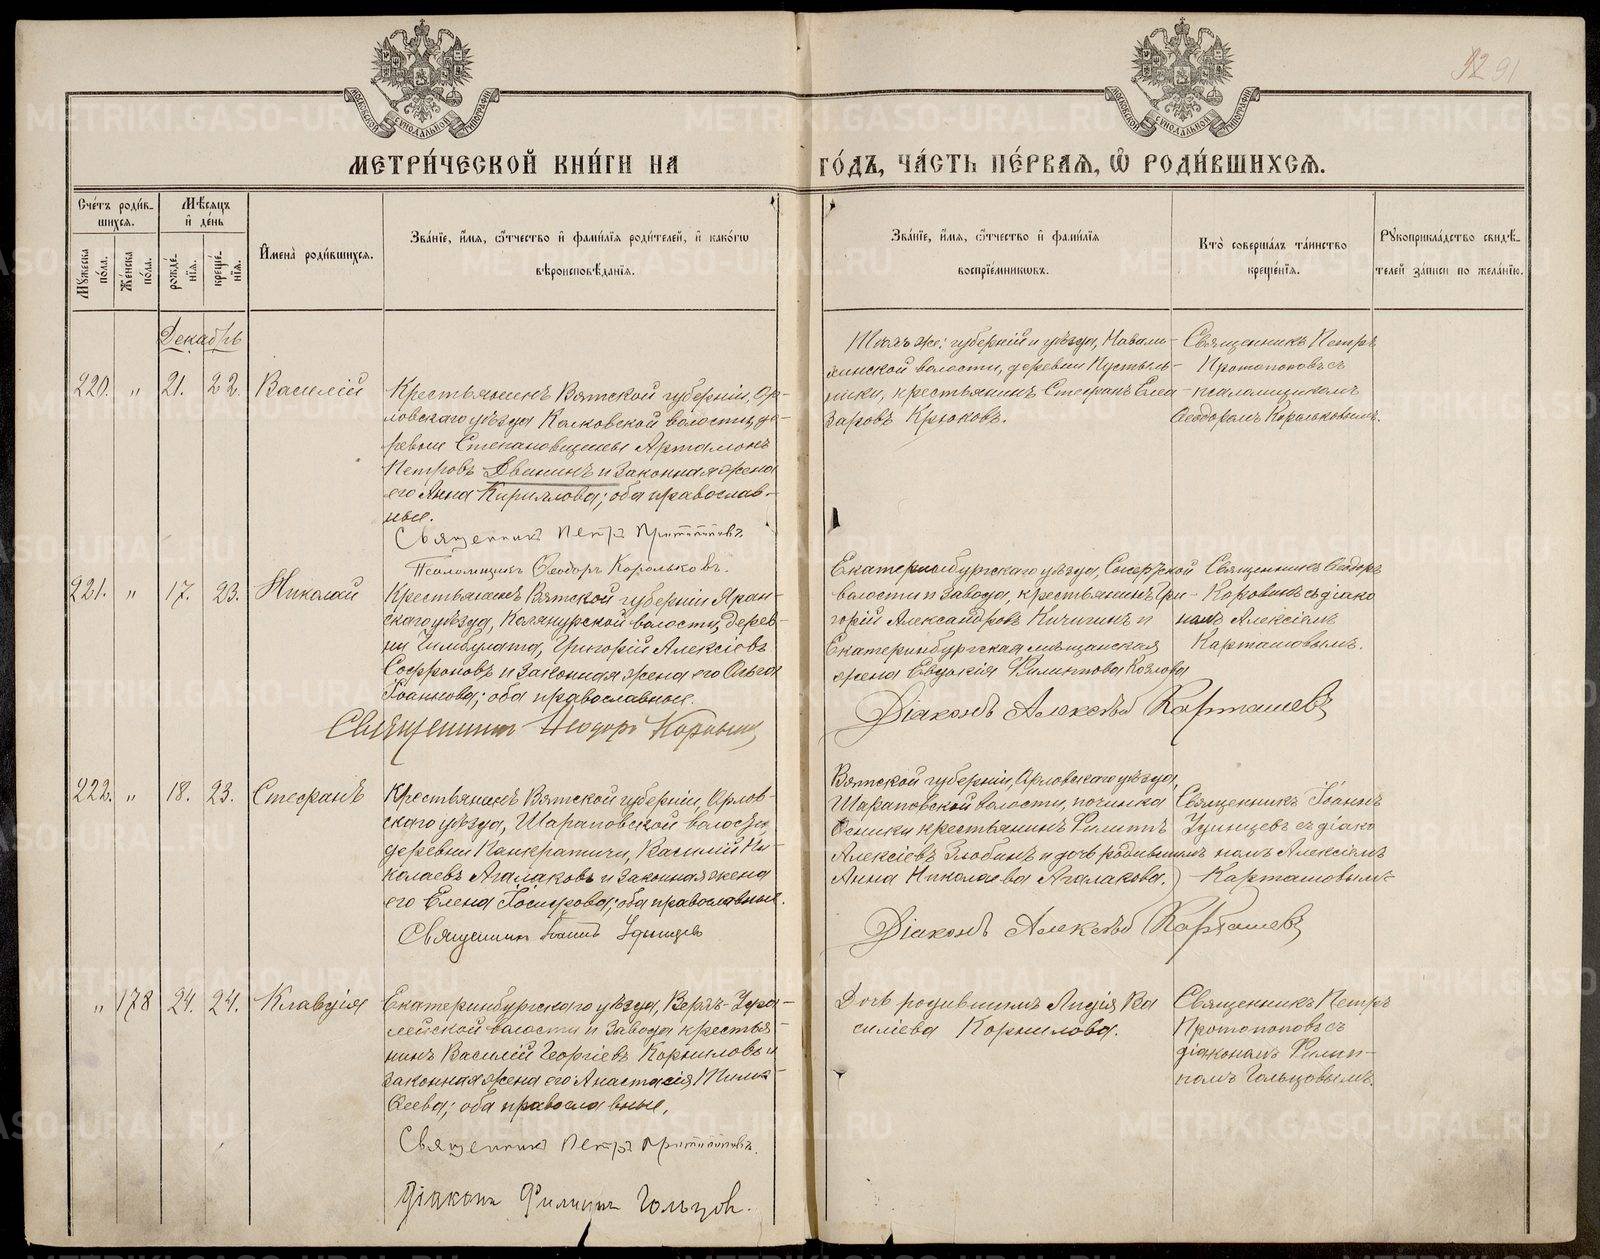 92 91
МЕТРИ́ЧЕСКОЙ КНИ́ГИ НА ГО́ДЪ, ЧА́СТЬ ПЕ́РВАЯ, Ѡ РОДИ́ВШИХСЯ.
Сче́тъ роди́вшихся.
Мѣ́сяцъ и де́нь
Му́жеска по́ла.
Же́нска по́ла.
рожде́нія.
креще́нія.
Имена̀ роди́вшихся.
Зва́ніе, и́мя, о́тчество и фами́лія роди́телей, и како́гѡ
вѣроисповѣ́данія.
Зва́ніе, и́мя, о́тчество и фами́лія
воспріе́мниковъ.
Кто̀ соверша́лъ та́инство
креще́нія.
Рукоприкла́дство свидѣ́-
телей за́писи по жела́нію.
Декабрь
220. " 21. 22. Василій
Крестьянинъ Вятской губерніи, Ор-
ловскаго уѣзда, волости, де-
ревни Степановщины Артамонъ
Петровъ Двининъ и законная жена
его Анна Кириллова; оба православ-
ные.
Священникъ Петръ Протопоповъ
Псаломщикъ Ѳеодоръ Корольковъ.
губерніи и уѣзда,
волости, деревни Пустынь-
ники, крестьянинъ Стефанъ Елеа-
заровъ Крюковъ.
Священникъ Петръ
Протопоповъ съ
псаломщикомъ
Ѳеодоромъ Корольковымъ.
221. " 17. 23. Николай
Крестьянинъ Вятской губерніи Яран-
скаго уѣзда, волости, дерев-
ни Григорій Алексіевъ
Софроновъ и законная жена его Ольга
Іоаннова; оба православные.
Священникъ Ѳеодоръ
Екатеринбургскаго уѣзда, Сысертской
волости и завода, крестьянинъ Гри-
горій Александровъ Кичигинъ и
Екатеринбургская мѣщанская
жена Евдокія Филиппова Козлова
Діаконъ Алексѣй Карташевъ
Священникъ Ѳеодоръ
Коровинъ съ діако
номъ Алексіемъ
Карташовымъ.
222. " 18. 23. Стефанъ
Крестьянинъ Вятской губерніи, Орлов-
скаго уѣзда, Шараповской волости,
деревни Панкратичи, Василій Ни-
колаевъ Агалаковъ и законная жена
его Елена оба православные.
Священникъ Іоаннъ Удинцевъ
Вятской губерніи, Орловскаго уѣзда,
Шараповской волости, починка
крестьянинъ Филиппъ
Алексіевъ Злобинъ и дочь родившихъ
Анна Николаева Агалакова.
Діаконъ Алексѣй Карташевъ
Священникъ Іоаннъ
Удинцевъ съ діако
номъ Алексіемъ
Карташовымъ
" 178 24. 24. Клавдія
Екатеринбургскаго уѣзда, Верхъ-
волости и завода крестья
нинъ Василій Георгіевъ Корниловъ и
законная жена его Анастасія Тимо-
ѳеева; оба православные.
Священникъ Петръ Протопоповъ.
Діаконъ Филиппъ Гольцовъ.
Дочь родившихъ Лидія Ва
силіева Корнилова.
Священникъ Петръ
Протопоповъ съ
діакономъ Филип-
помъ Гольцовымъ.